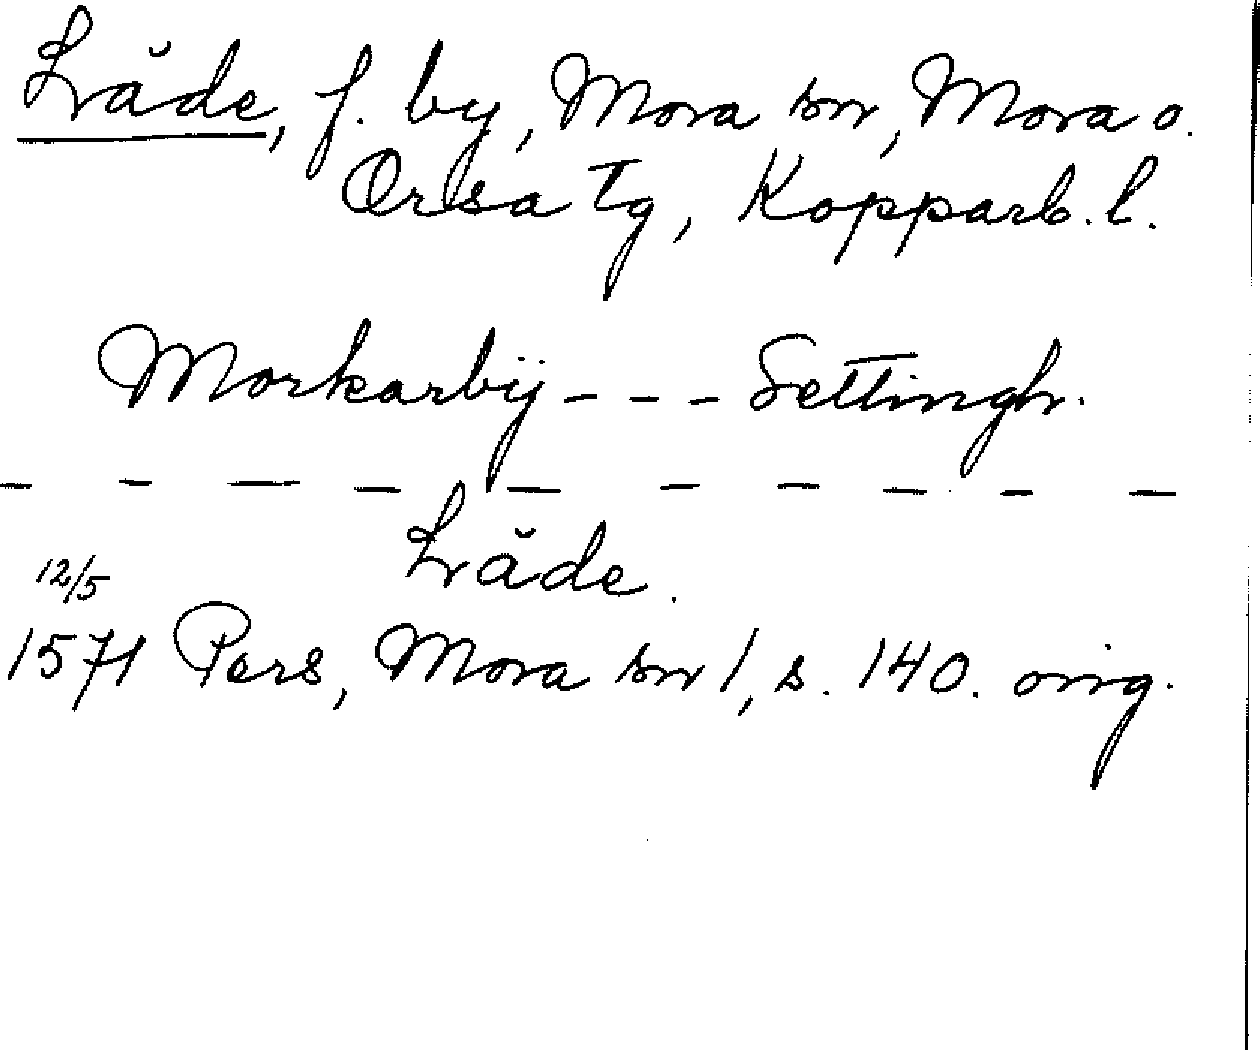 Lvăde, f. by, Mora sn, Mora o.
Orsa tg, Kopparb. l.
Morkarbÿ - - - Settingh.
- - - - - - - - - -
Lvăde.
12/5
1571 Pers, Mora sn 1, s. 140. orig.